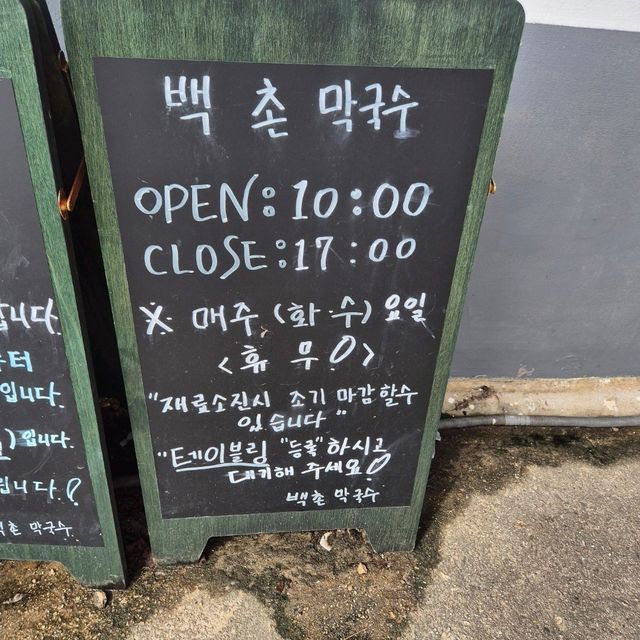 백촌 막국수
OPEN: 10:00
CLOSE: 17:00
※ 매주 (화·수) 요일
<휴무!>
"재료소진시 조기 마감할수
있습니다"
"테이블링 "등록"하시고
대기해 주세요!
백촌 막국수
입니다.
입니다.
막국수